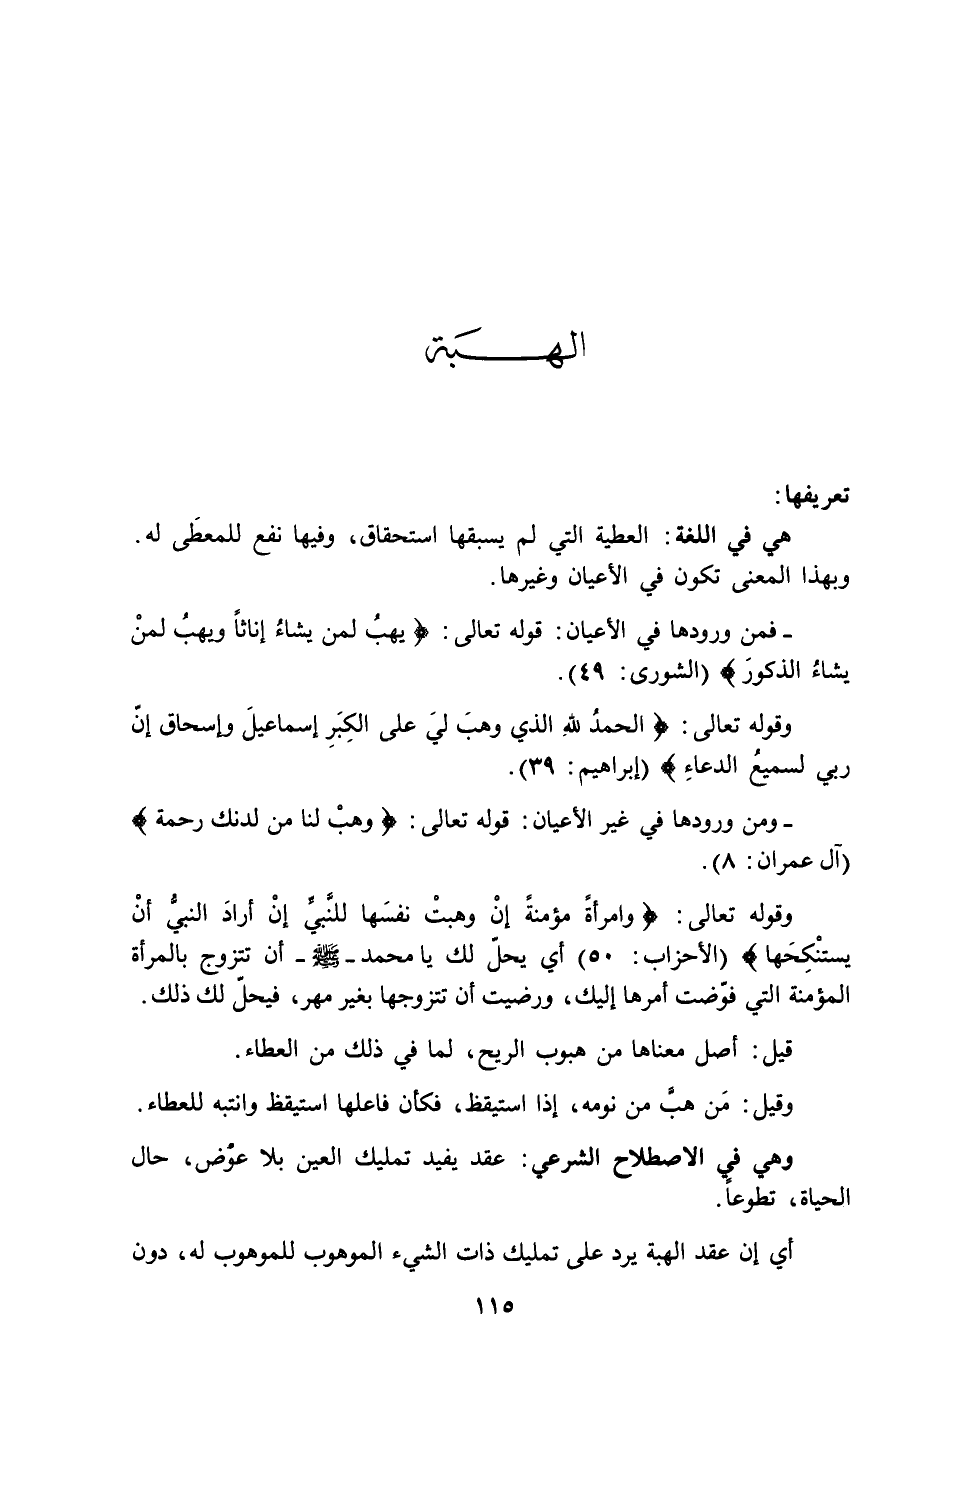 الهــــبَة
تعريفها:
هي في اللغة: العطية التي لم يسبقها استحقاق، وفيها نفع للمعطَى له.
وبهذا المعنى تكون في الأعيان وغيرها.
ـ فمن ورودها في الأعيان: قوله تعالى: ﴿ يهبُ لمن يشاءُ إناثاً ويهبُ لمنْ
يشاءُ الذكورَ ﴾ (الشورى: ٤٩).
وقوله تعالى: ﴿ الحمدُ للهِ الذي وهبَ ليَ على الكِبَرِ إسماعيلَ وإسحاق إنّ
ربي لسميعُ الدعاءِ ﴾ (إبراهيم: ٣٩).
ـ ومن ورودها في غير الأعيان: قوله تعالى: ﴿ وهبْ لنا من لدنك رحمة ﴾
(آل عمران: ٨).
وقوله تعالى: ﴿ وامرأةً مؤمنةً إنْ وهبتْ نفسَها للنَّبيِّ إنْ أرادَ النبيُّ أنْ
يستنْكِحَها ﴾ (الأحزاب: ٥٠) أي يحلّ لك يا محمد ـ ﷺ ـ أن تتزوج بالمرأة
المؤمنة التي فوّضت أمرها إليك، ورضيت أن تتزوجها بغير مهر، فيحلّ لك ذلك.
قيل: أصل معناها من هبوب الريح، لما في ذلك من العطاء.
وقيل: مَن هبَّ من نومه، إذا استيقظ، فكأن فاعلها استيقظ وانتبه للعطاء.
وهي في الاصطلاح الشرعي: عقد يفيد تمليك العين بلا عوَض، حال
الحياة، تطوعاً.
أي إن عقد الهبة يرد على تمليك ذات الشيء الموهوب للموهوب له، دون
١١٥